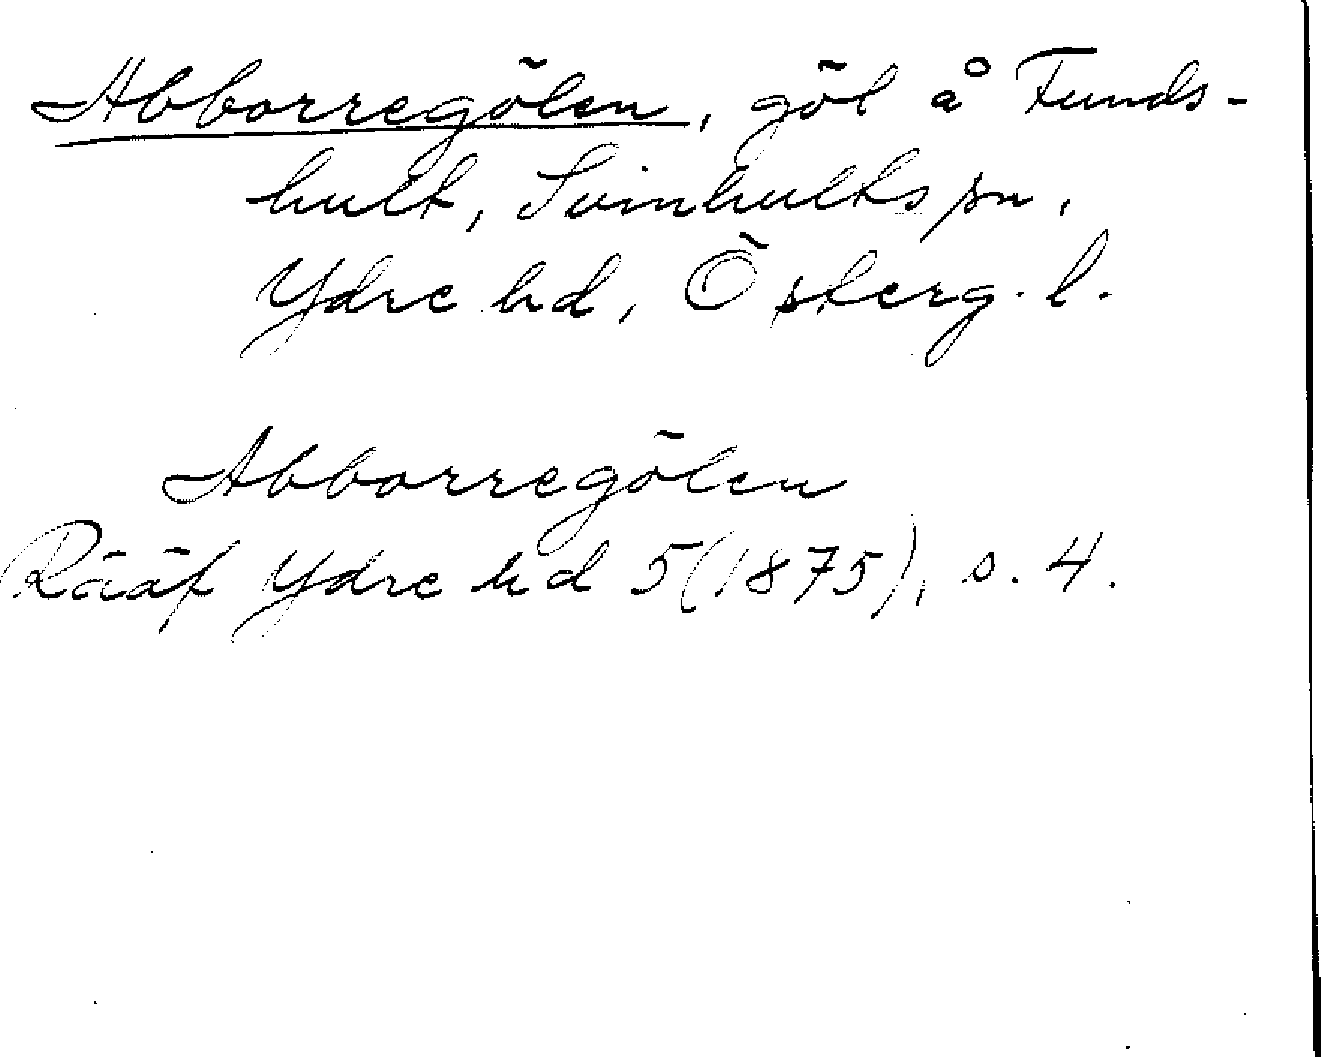 Abborregölen, göl å Funds-
hult, Svinhults sn,
Ydre hd, Österg. l.
Abborregölen
Rääf Ydre hd 5(1875), s. 4.